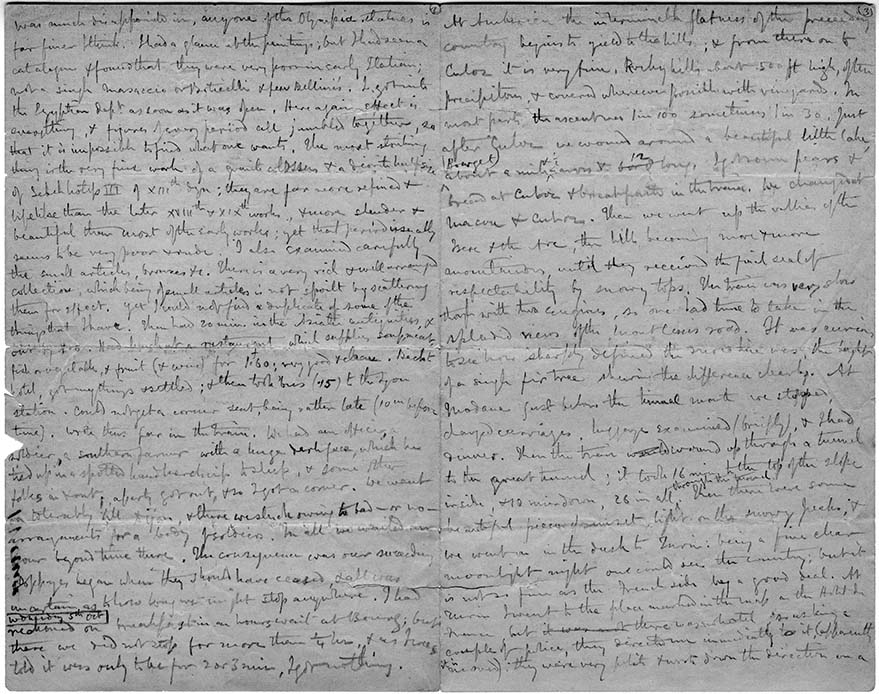 (2)
was much disappointed in, anyone of the Olympia statues is
far finer I think. I had a glance at the paintings; but I had seen a
catalogue & found that they were very poor in early Italian;
not a single Masaccio or Botticelli & few Bellini's. I got into
the Egyptian Dept as soon as it was open. Here again effect is
everything, & figures of every period all jumbled together, so
that it is impossible to find what one wants. The most striking
thing is the very fine work of a granite colossus & a diorite half size
of Sebekhotep III of XIIIth Dyn; they are far more refined &
lifelike than the later XVIIIth & XIXth works, & more slender &
beautiful than most of the early works; yet that period usually
seems to be very poor & rude. I also examined carefully
the small articles, bronzes &c. There is a very rich & well arranged
collection, which being of small articles is not spoilt by scattering
them for effect. Yet I could not find a duplicate of some of the
things that I have. Then had 20 mins in the Asiatic antiquities, &
out by 1.30. Had lunch at a restaurant which supplies soup, meat
fish or vegetable, & fruit (& wine) for 1f 60; very good & clean. Back to
hotel, got my things & settled; & then took bus to the Lyon
station. Could not get a corner seat being rather late (10 m before
time). Write thus far in the train. We had an officer, a
soldier, a southern farmer with a huge dark face, which he
tied up in a spotted handkerchief to sleep, & some other
folks in & out; a party got out, & so I got a corner. We went
on tolerably till Dijon, & there we stuck owing to bad – or no –
arrangements for a body of soldiers. In all we waited an
hour beyond time there. The consequence was our succeeding
stoppages began when they should have ceased, & all was
uncertain as to how long we might stop anywhere. I had
Wednesday 5th Oct
reckoned on breakfast in an hours wait at Bourg; but
there we did not stop for more than ¼ hr, & as I was
told it was only to be for 2 or 3 min, I got nothing.
(3)
At Amberieu the interminable flatness of the preceeding
country begins to yield to the hills; & from there on to
Culoz it is very fine. Rocky hills about 500 ft high, often
precipitous, & covered wherever possible with vineyards. In
most parts the ascent was 1 in 100 sometimes 1 in 30. Just
after Culoz we wound around a beautiful little lake
(Bourget) about a mile across & 12 long. I got some pears &
bread at Culoz & breakfasted in the train. We changed at
Macon & Culoz. Then we went up the vallies of the
Isere & the Arc, the hills becoming more & more
mountainous, until they received the final seal of
respectability by snowy tops. The train was very slow
though with two engines, so one had time to take in the
splendid views of the Mont Cenis road. It was curious
to see how sharply defined the snow line was; the height
of a single fir tree shewing the difference clearly. At
Modane just before the tunnel mouth we stopped,
changed carriages, luggage examined (briefly), & I had
dinner. Then the train wound up through a tunnel
to the great tunnel; it took 16 mins to the top of the slope
inside, & 10 min down, 26 in all through the tunnel. Then there were some
beautiful pieces of sunset light on the snowy peaks; &
we went on in the dusk to Turin: being a fine clear
moonlight night one could see the country; but it
is not so fine as the French side by a good deal. At
Turin I went to the place marked in the map as the Hotel de
France, but there was no hotel, so asking a
couple of police, they directed me immediately to it (apparently
moved): they were very polite & wrote down the direction on a